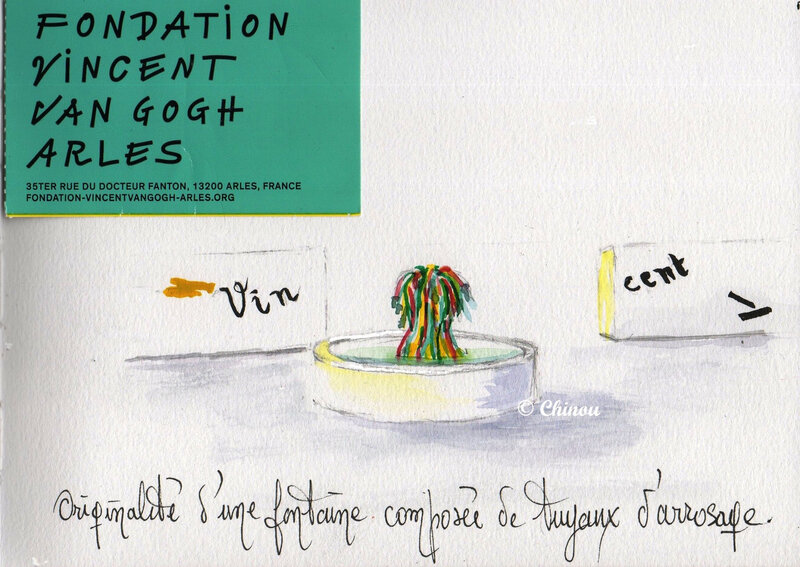 FONDATION
VINCENT
VAN GOGH
ARLES
35TER RUE DU DOCTEUR FANTON, 13200 ARLES, FRANCE
FONDATION-VINCENTVANGOGH-ARLES.ORG
Vin
cent
© Chinou
Originalité d'une fontaine composée de tuyaux d'arrosage.